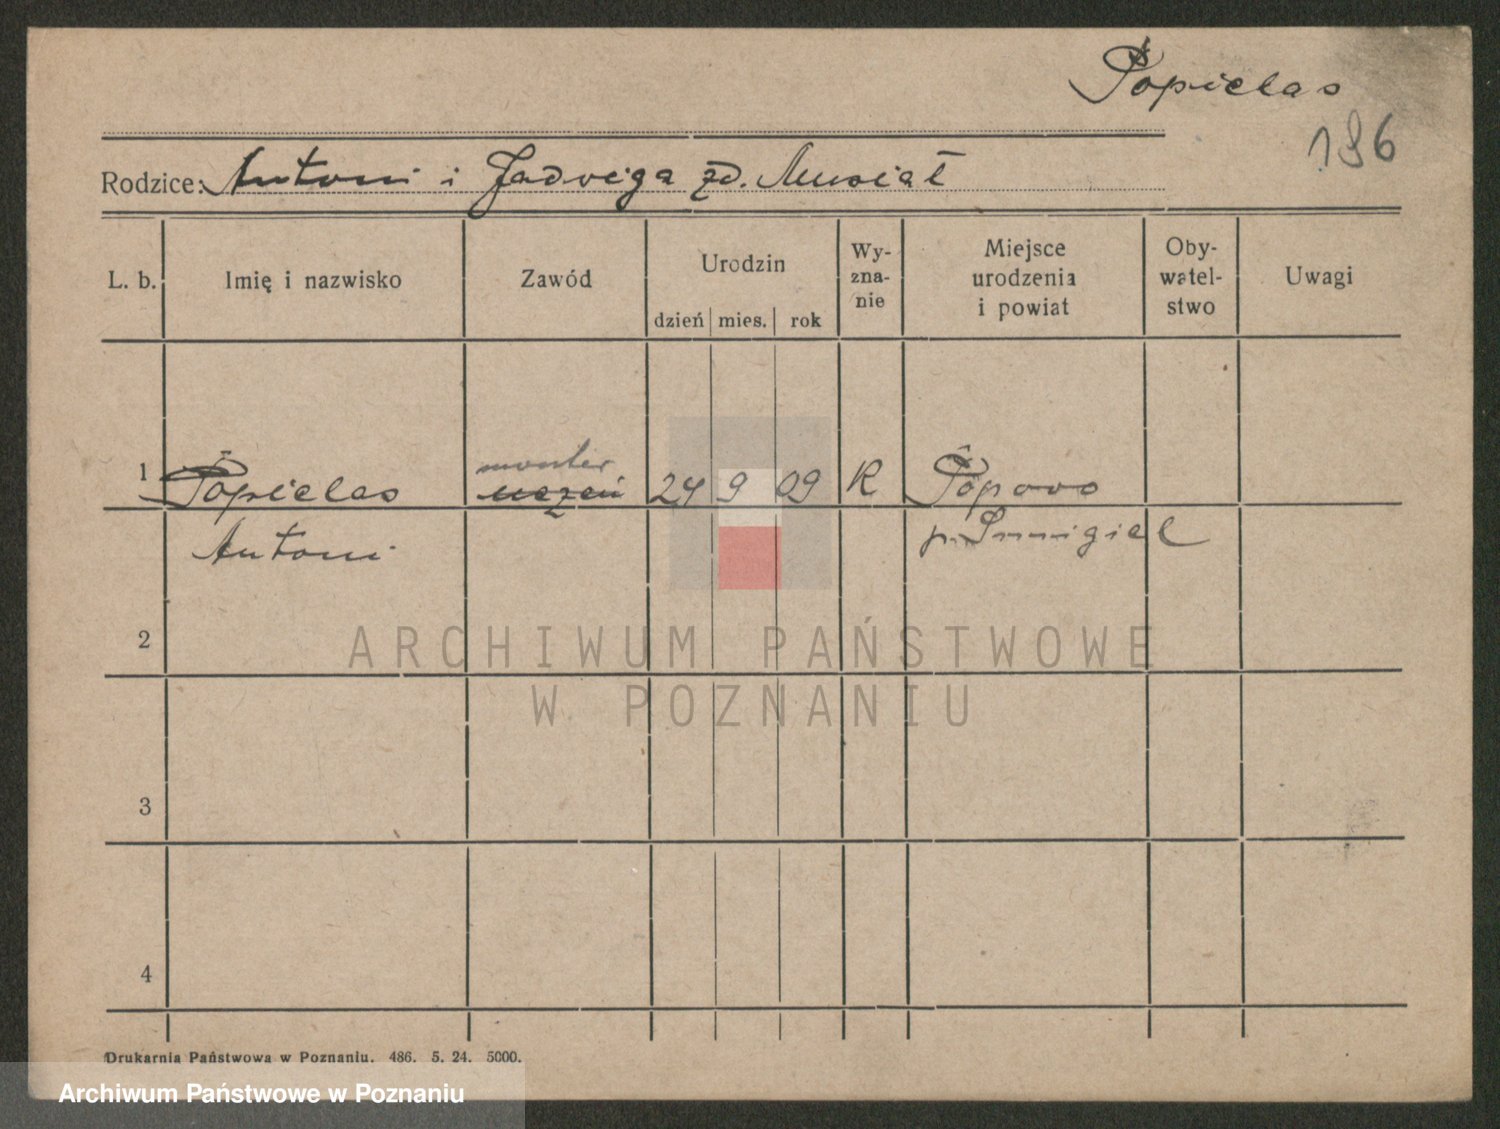 Popielas
196
Rodzice: Antoni i Jadwiga zd. Musiał
L. b.
Imię i nazwisko
Zawód
Urodzin
dzień mies. rok
Wy-
zna-
nie
Miejsce
urodzenia
i powiat
Oby-
watel-
stwo
Uwagi
monter
1 Popielas uczeń 24 9 09 R Popowo
Antoni p. Śmigiel
2
ARCHIWUM PAŃSTWOWE
W POZNANIU
3
4
Drukarnia Państwowa w Poznaniu. 486. 5. 24. 5000.
Archiwum Państwowe w Poznaniu